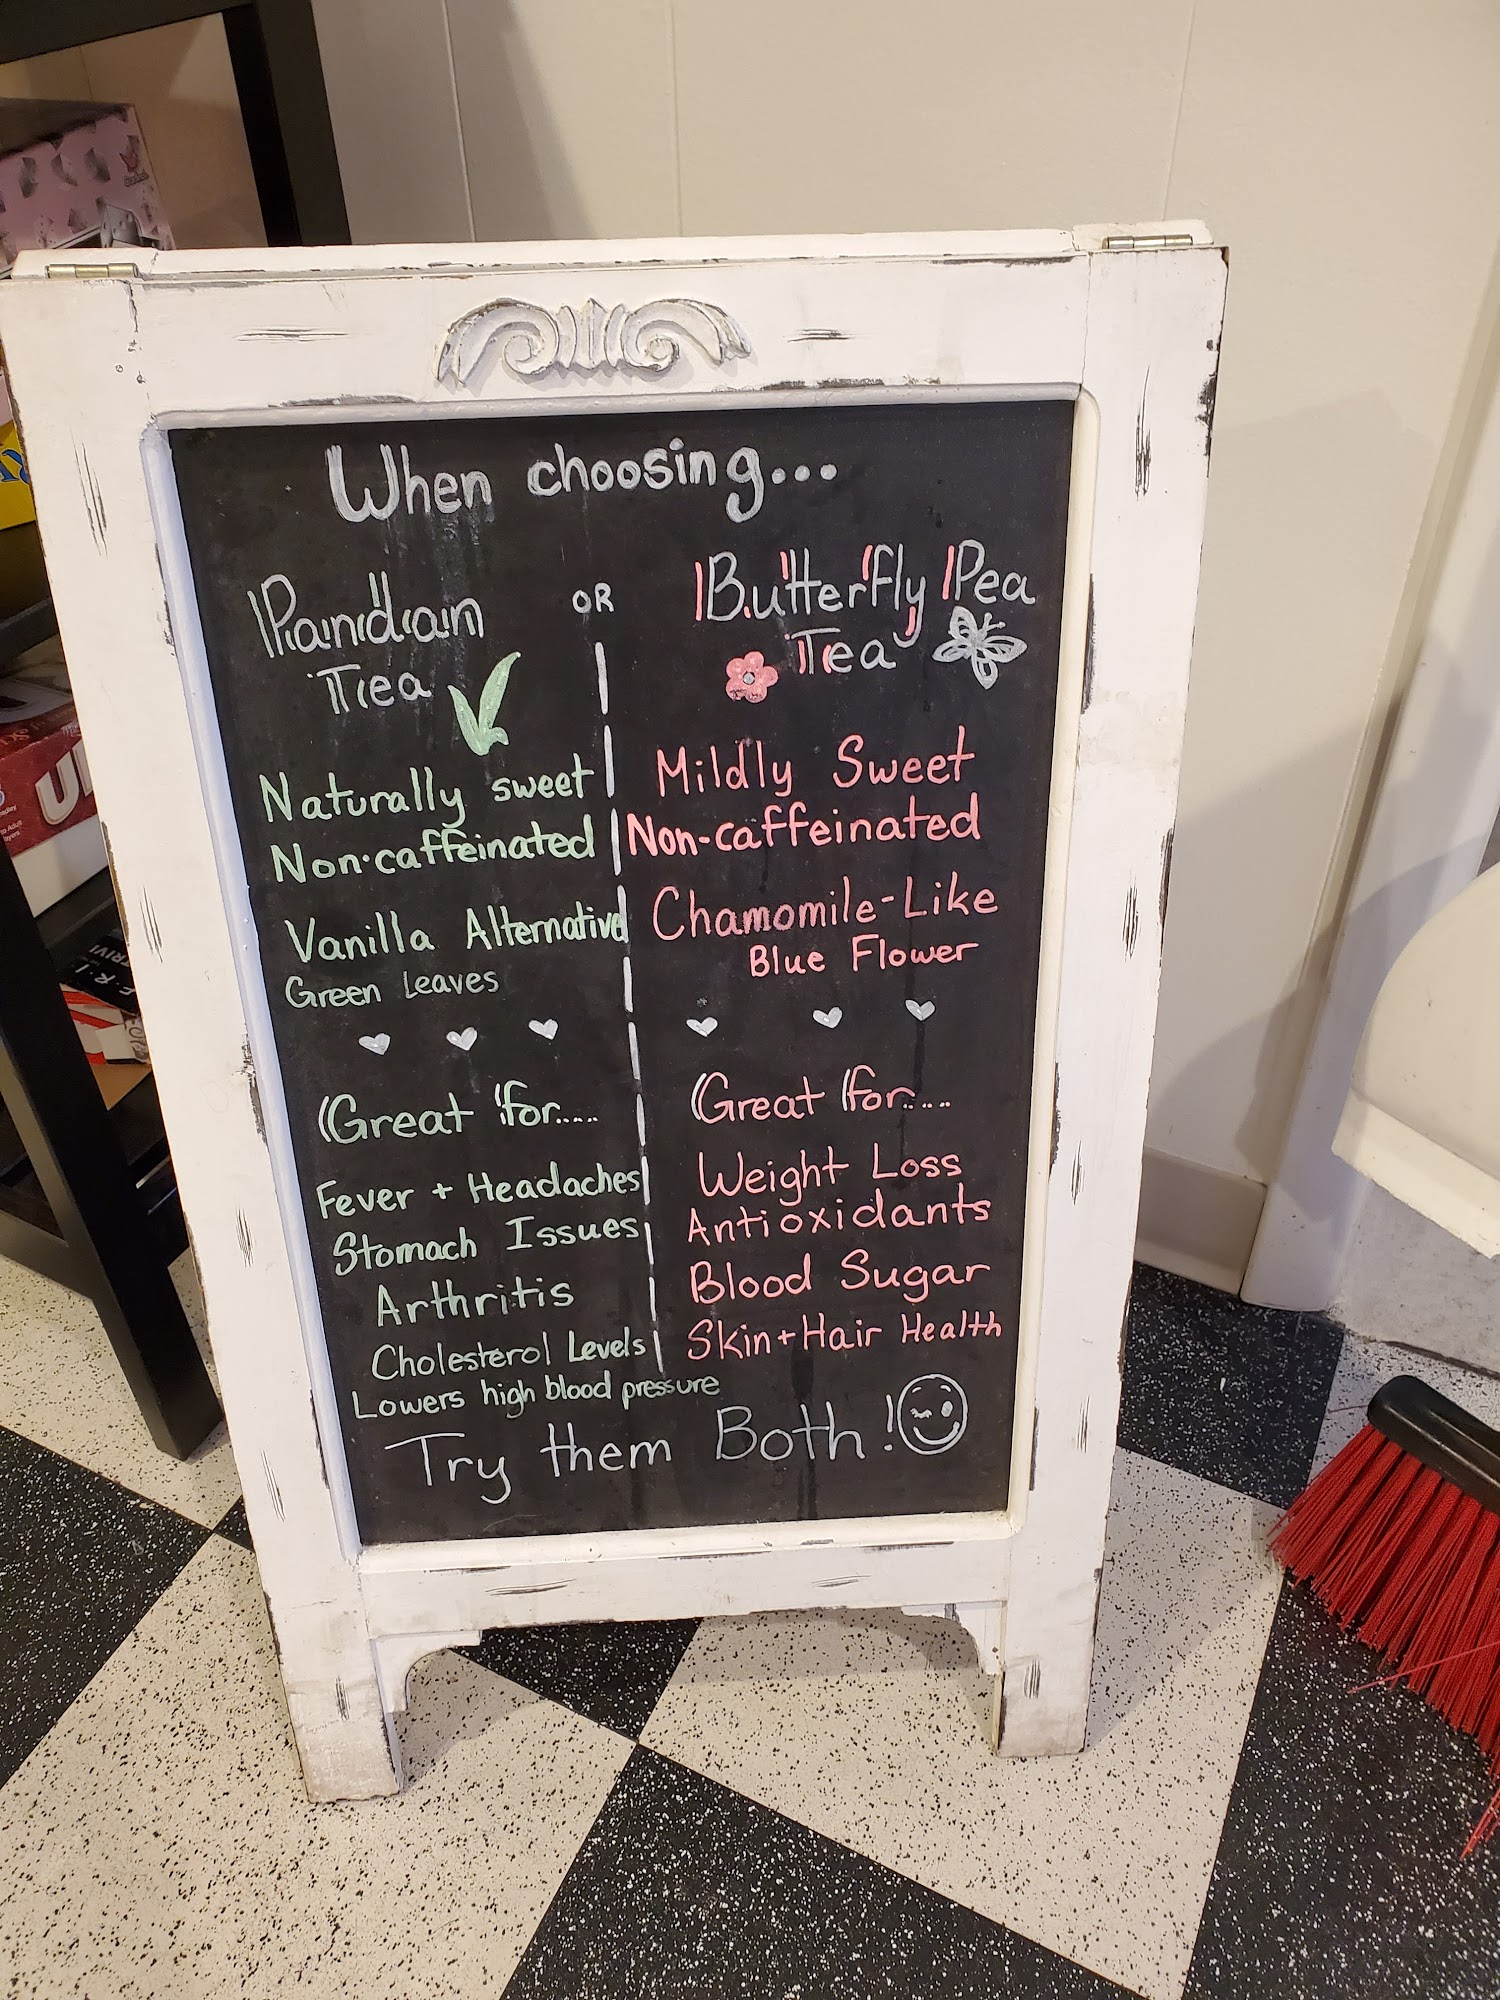 When choosing...
Pandan
Tea
OR
Butterfly Pea
Tea
Naturally sweet
Non-caffeinated
Vanilla Alternative
Green Leaves
Great for.....
Fever + Headaches
Stomach Issues
Arthritis
Cholesterol Levels
Lowers high blood pressure
Mildly Sweet
Non-caffeinated
Chamomile-Like
Blue Flower
Great for....
Weight Loss
Antioxidants
Blood Sugar
Skin + Hair Health
Try them Both!